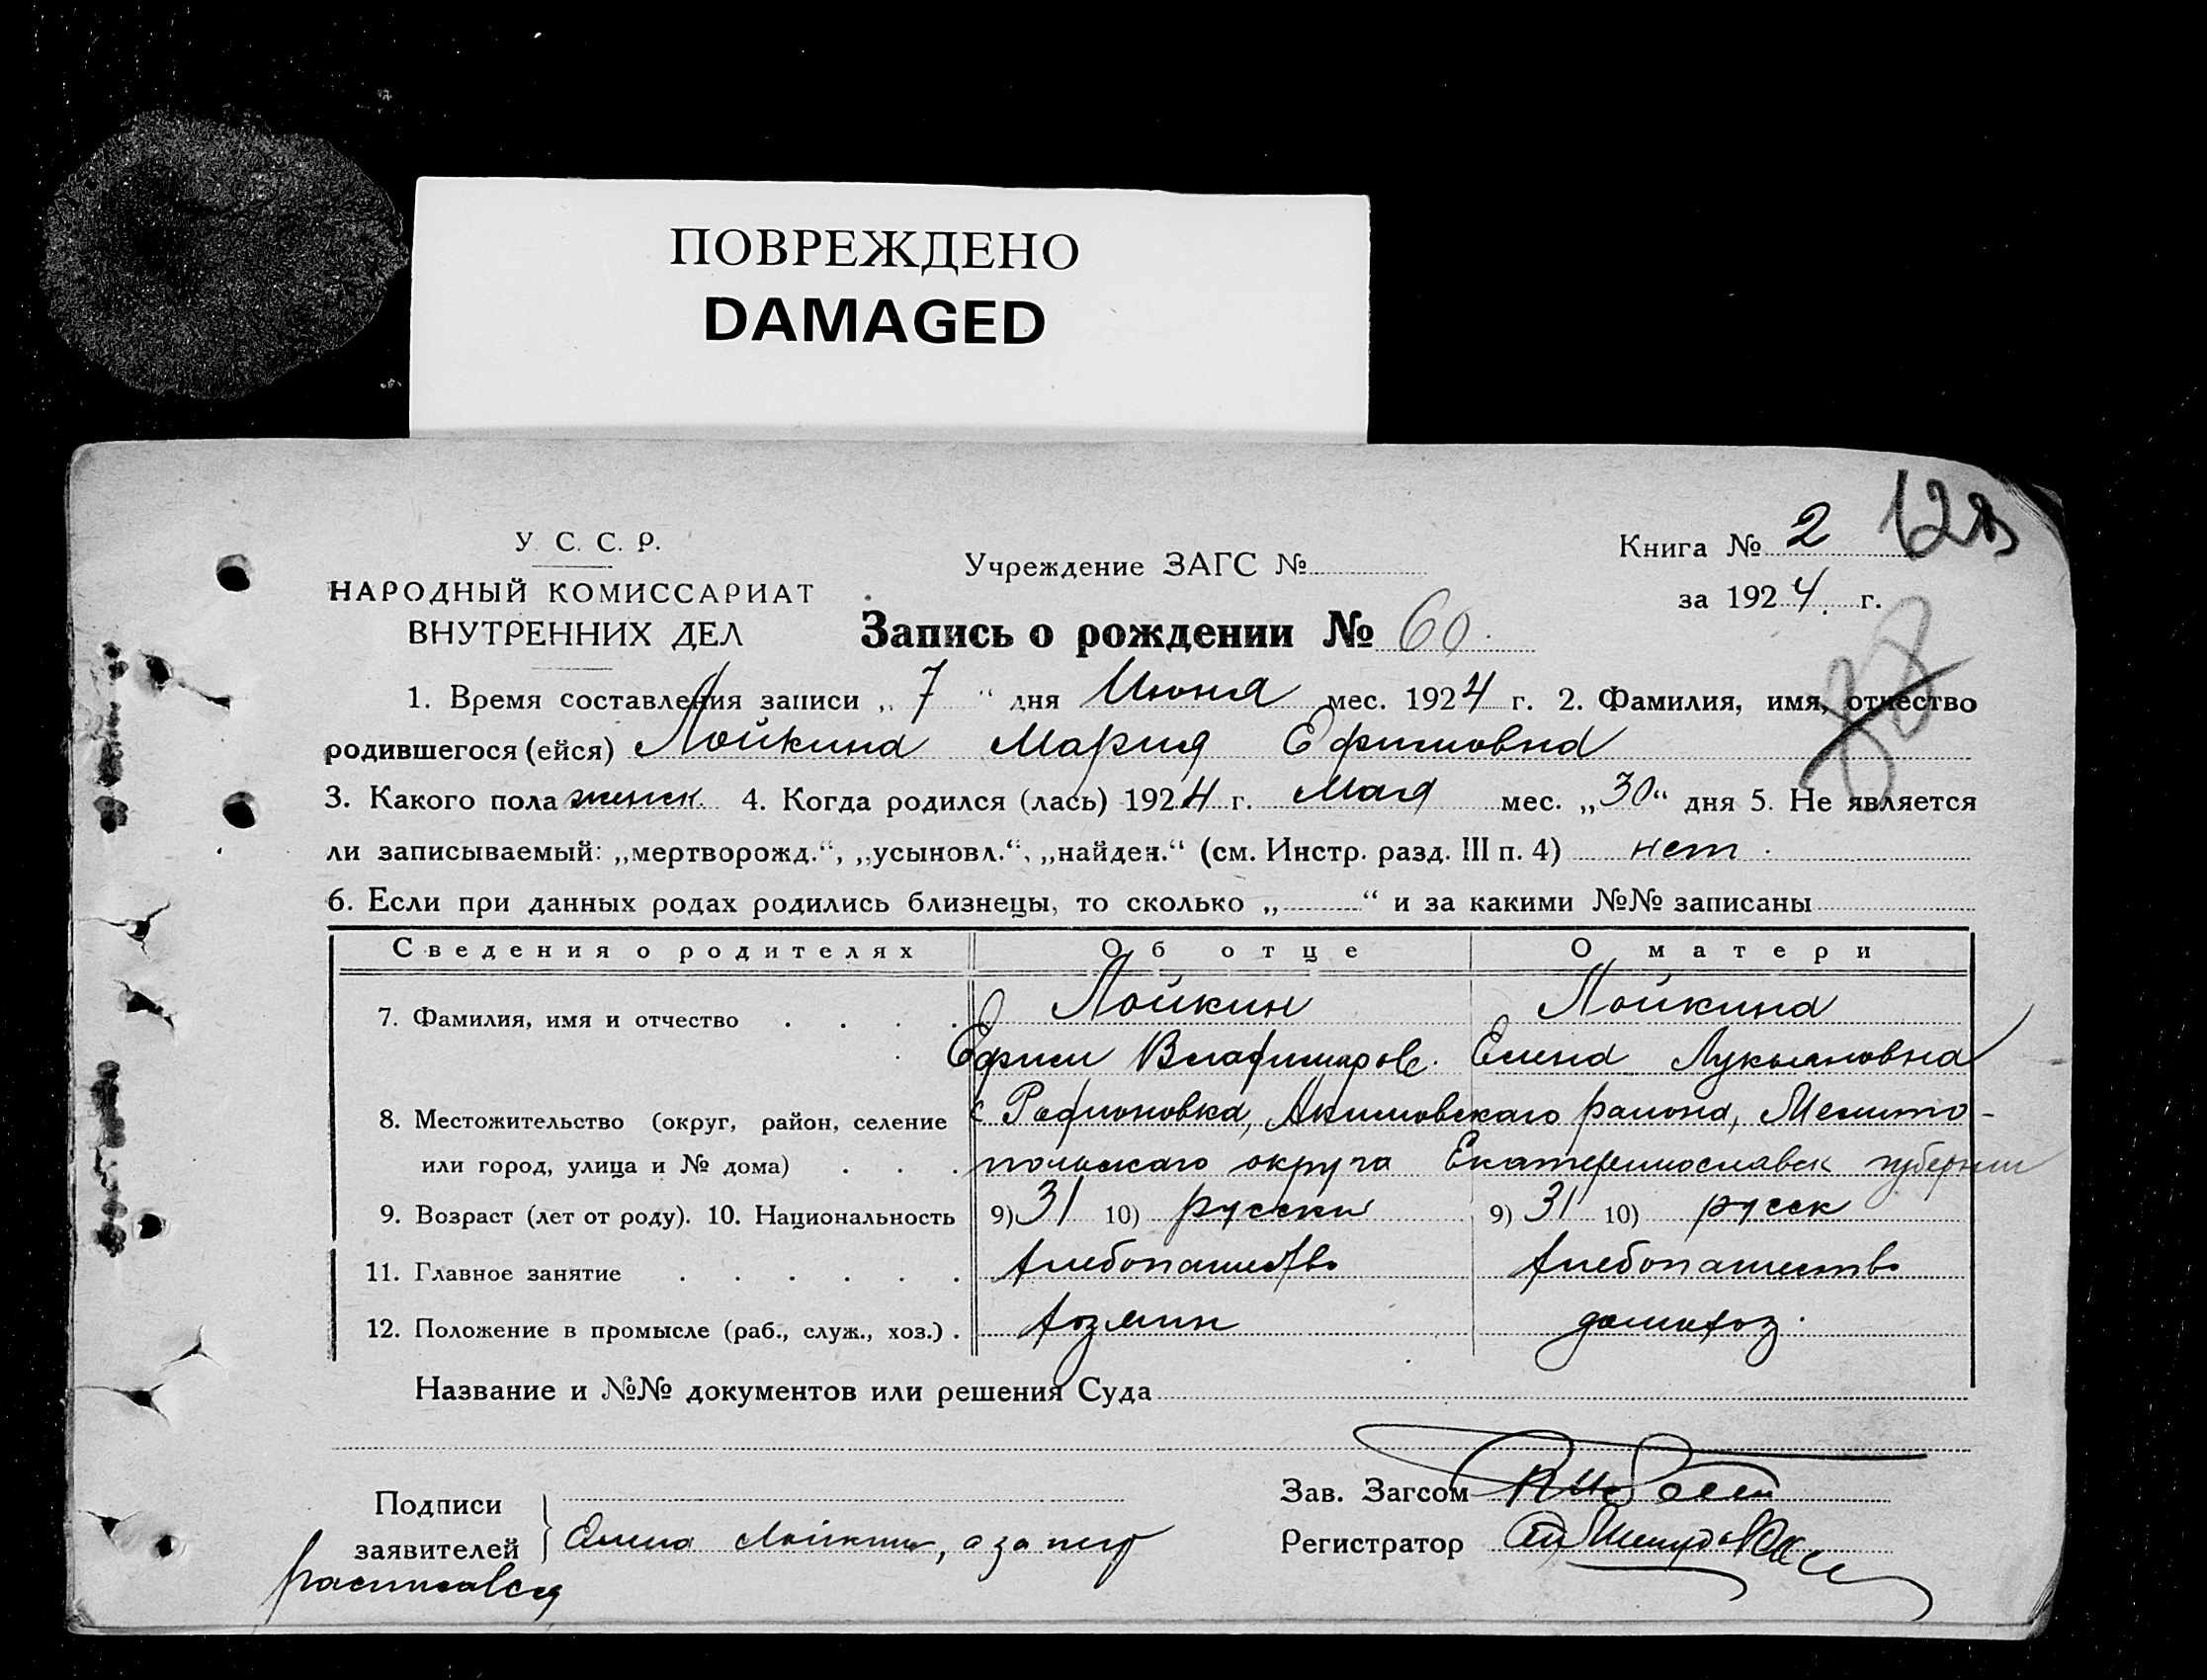 ПОВРЕЖДЕНО
DAMAGED
У. С. С. Р.
НАРОДНЫЙ КОМИССАРИАТ
ВНУТРЕННИХ ДЕЛ
Учреждение ЗАГС №
Книга № 2
за 1924. г.
Запись о рождении № 60.
1. Время составления записи „ 7 “ дня Июня мес. 1924 г. 2. Фамилия, имя, отчество
родившегося (ейся) Лойкина Мария Ефимовна
3. Какого пола женск. 4. Когда родился (лась) 1924 г. Мая мес. „30“ дня 5. Не является
ли записываемый: „мертворожд.“, „усыновл.“, „найден.“ (см. Инстр. разд. III п. 4) нет.
6. Если при данных родах родились близнецы, то сколько „ “ и за какими №№ записаны
Сведения о родителях Об отце О матери
7. Фамилия, имя и отчество Лойкин Лойкина
Ефим Владимиров. Елена Лукьяновна
8. Местожительство (округ, район, селение с Родионовка, Акимовскаго района, Мелито-
или город, улица и № дома) польскаго округа Екатеринославск губернии
9. Возраст (лет от роду). 10. Национальность 9) 31 10) русски 9) 31 10) русск
11. Главное занятие хлебопашество хлебопашество
12. Положение в промысле (раб., служ., хоз.) хозяин домохоз.
Название и №№ документов или решения Суда
Подписи
заявителей Елена Лойкина, а за неё
расписался
Зав. Загсом
Регистратор